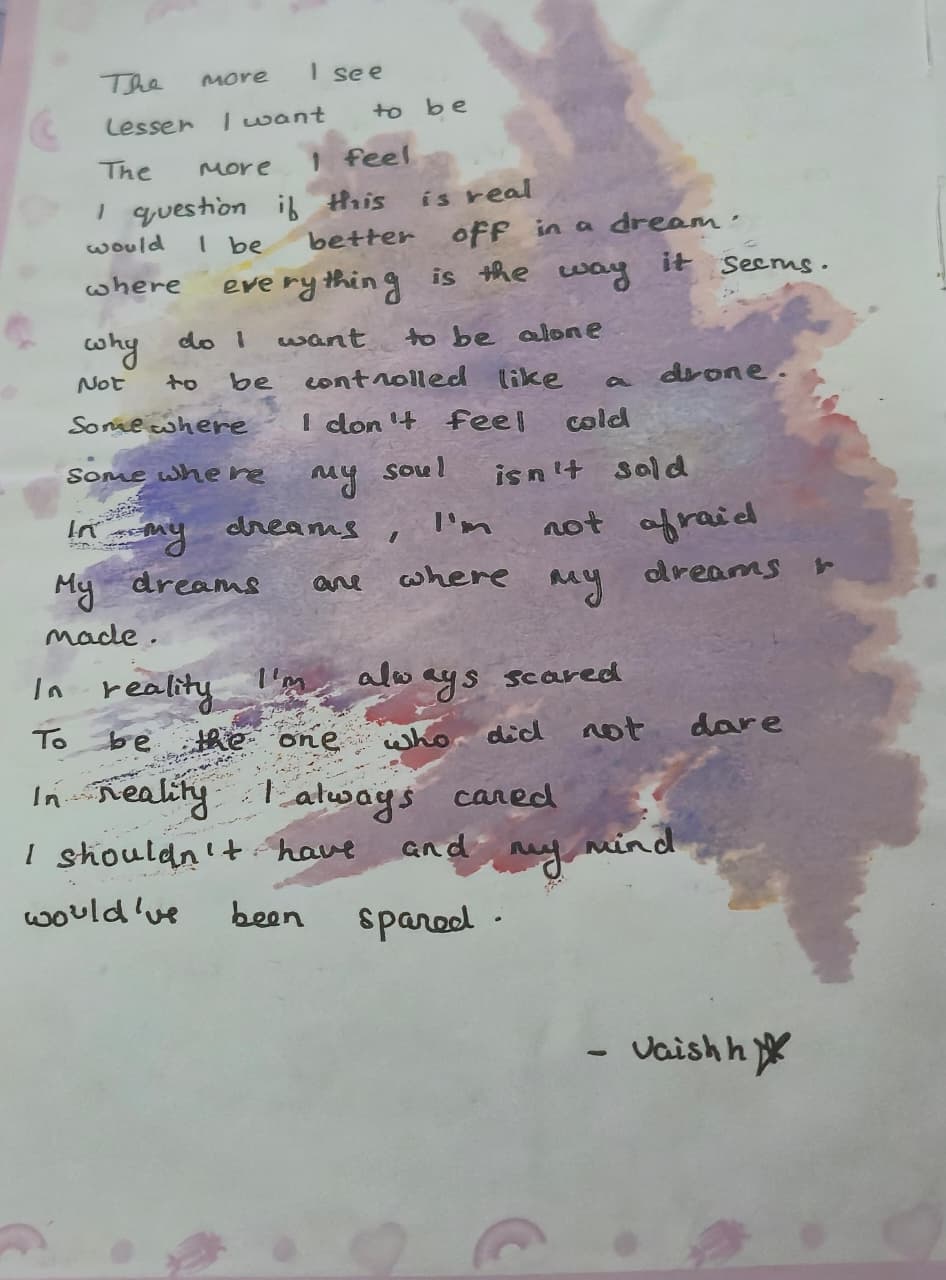 The more I see
Lesser I want to be
The more I feel
I question if this is real
would I be better off in a dream.
where everything is the way it seems.
why do I want to be alone
Not to be controlled like a drone.
Somewhere I don't feel cold
somewhere my soul isn't sold
In my dreams, I'm not afraid
My dreams are where my dreams r
made.
In reality I'm always scared
To be the one who did not dare
In reality I always cared
I shouldn't have and my mind
would've been spared.
- Vaishh